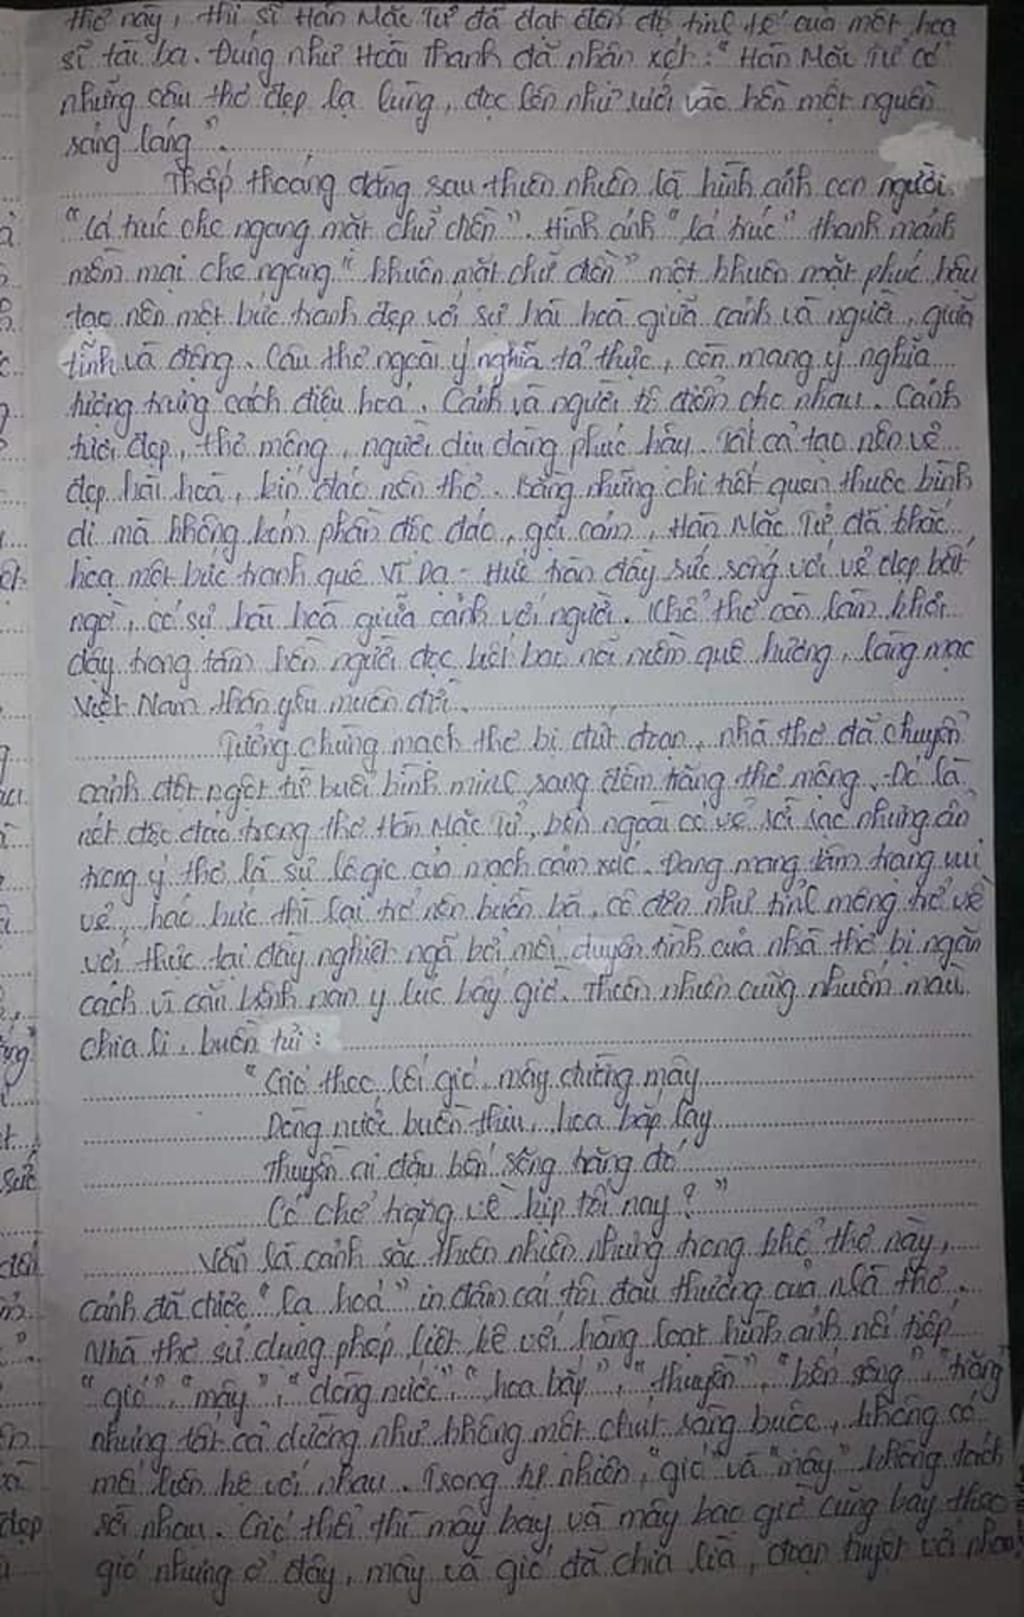 thơ này, thi sĩ Hàn Mặc Tử đã đạt đến độ tinh tế của một hoạ
sĩ tài ba. Đúng như Hoài Thanh đã nhận xét: "Hàn Mặc Tử có
những câu thơ đẹp lạ lùng, đọc lên như rưới vào hồn một nguồn
sáng láng".
Thấp thoáng đằng sau thiên nhiên là hình ảnh con người
"Lá trúc che ngang mặt chữ điền". Hình ảnh "lá trúc" thanh mảnh
mềm mại che ngang "khuôn mặt chữ điền" một khuôn mặt phúc hậu
tạo nên một bức tranh đẹp với sự hài hoà giữa cảnh và người, giữa
tĩnh và động. Câu thơ ngoài ý nghĩa tả thực, còn mang ý nghĩa
tượng trưng cách điệu hoá. Cảnh và người tô điểm cho nhau. Cảnh
tươi đẹp, thơ mộng, người dịu dàng phúc hậu. Tất cả tạo nên vẻ
đẹp hài hoà, kín đáo nên thơ. Bằng những chi tiết quen thuộc bình
dị mà không kém phần độc đáo, gợi cảm, Hàn Mặc Tử đã khắc
hoạ một bức tranh quê Vĩ Dạ - Huế tràn đầy sức sống với vẻ đẹp bất
ngờ, có sự hài hoà giữa cảnh với người. Khổ thơ còn làm khơi
dậy trong tâm hồn người đọc biết bao nỗi niềm quê hương, làng mạc
Việt Nam thân yêu muôn đời.
Tưởng chừng mạch thơ bị đứt đoạn, nhà thơ đã chuyển
cảnh đột ngột từ buổi bình minh sang đêm trăng thơ mộng. Đó là
nét độc đáo trong thơ Hàn Mặc Tử, bên ngoài có vẻ rời rạc nhưng ẩn
trong ý thơ là sự lôgic của mạch cảm xúc. Đang mang tâm trạng vui
vẻ, háo hức thì lại trở nên buồn bã, cô đơn như tỉnh mộng trở về
với thực tại đầy nghiệt ngã bởi mối duyên tình của nhà thơ bị ngăn
cách vì căn bệnh nan y lúc bấy giờ. Thiên nhiên cũng nhuốm màu
chia li, buồn tủi:
"Gió theo lối gió, mây đường mây
Dòng nước buồn thiu, hoa bắp lay
Thuyền ai đậu bến sông trăng đó
Có chở trăng về kịp tối nay?"
Vẫn là cảnh sắc thiên nhiên nhưng trong khổ thơ này,
cảnh đã được "lạ hoá" in đậm cái tôi đau thương của nhà thơ.
Nhà thơ sử dụng phép liệt kê với hàng loạt hình ảnh nối tiếp
"gió", "mây", "dòng nước", "hoa bắp", "thuyền", "bến sông", "trăng"
nhưng tất cả dường như không một chút ràng buộc, không có
mối liên hệ với nhau. Trong tự nhiên, "gió" và "mây" không tách
rời nhau. Gió thổi thì mây bay và mây bao giờ cũng bay theo
gió nhưng ở đây, mây và gió đã chia lìa, đoạn tuyệt với nhau